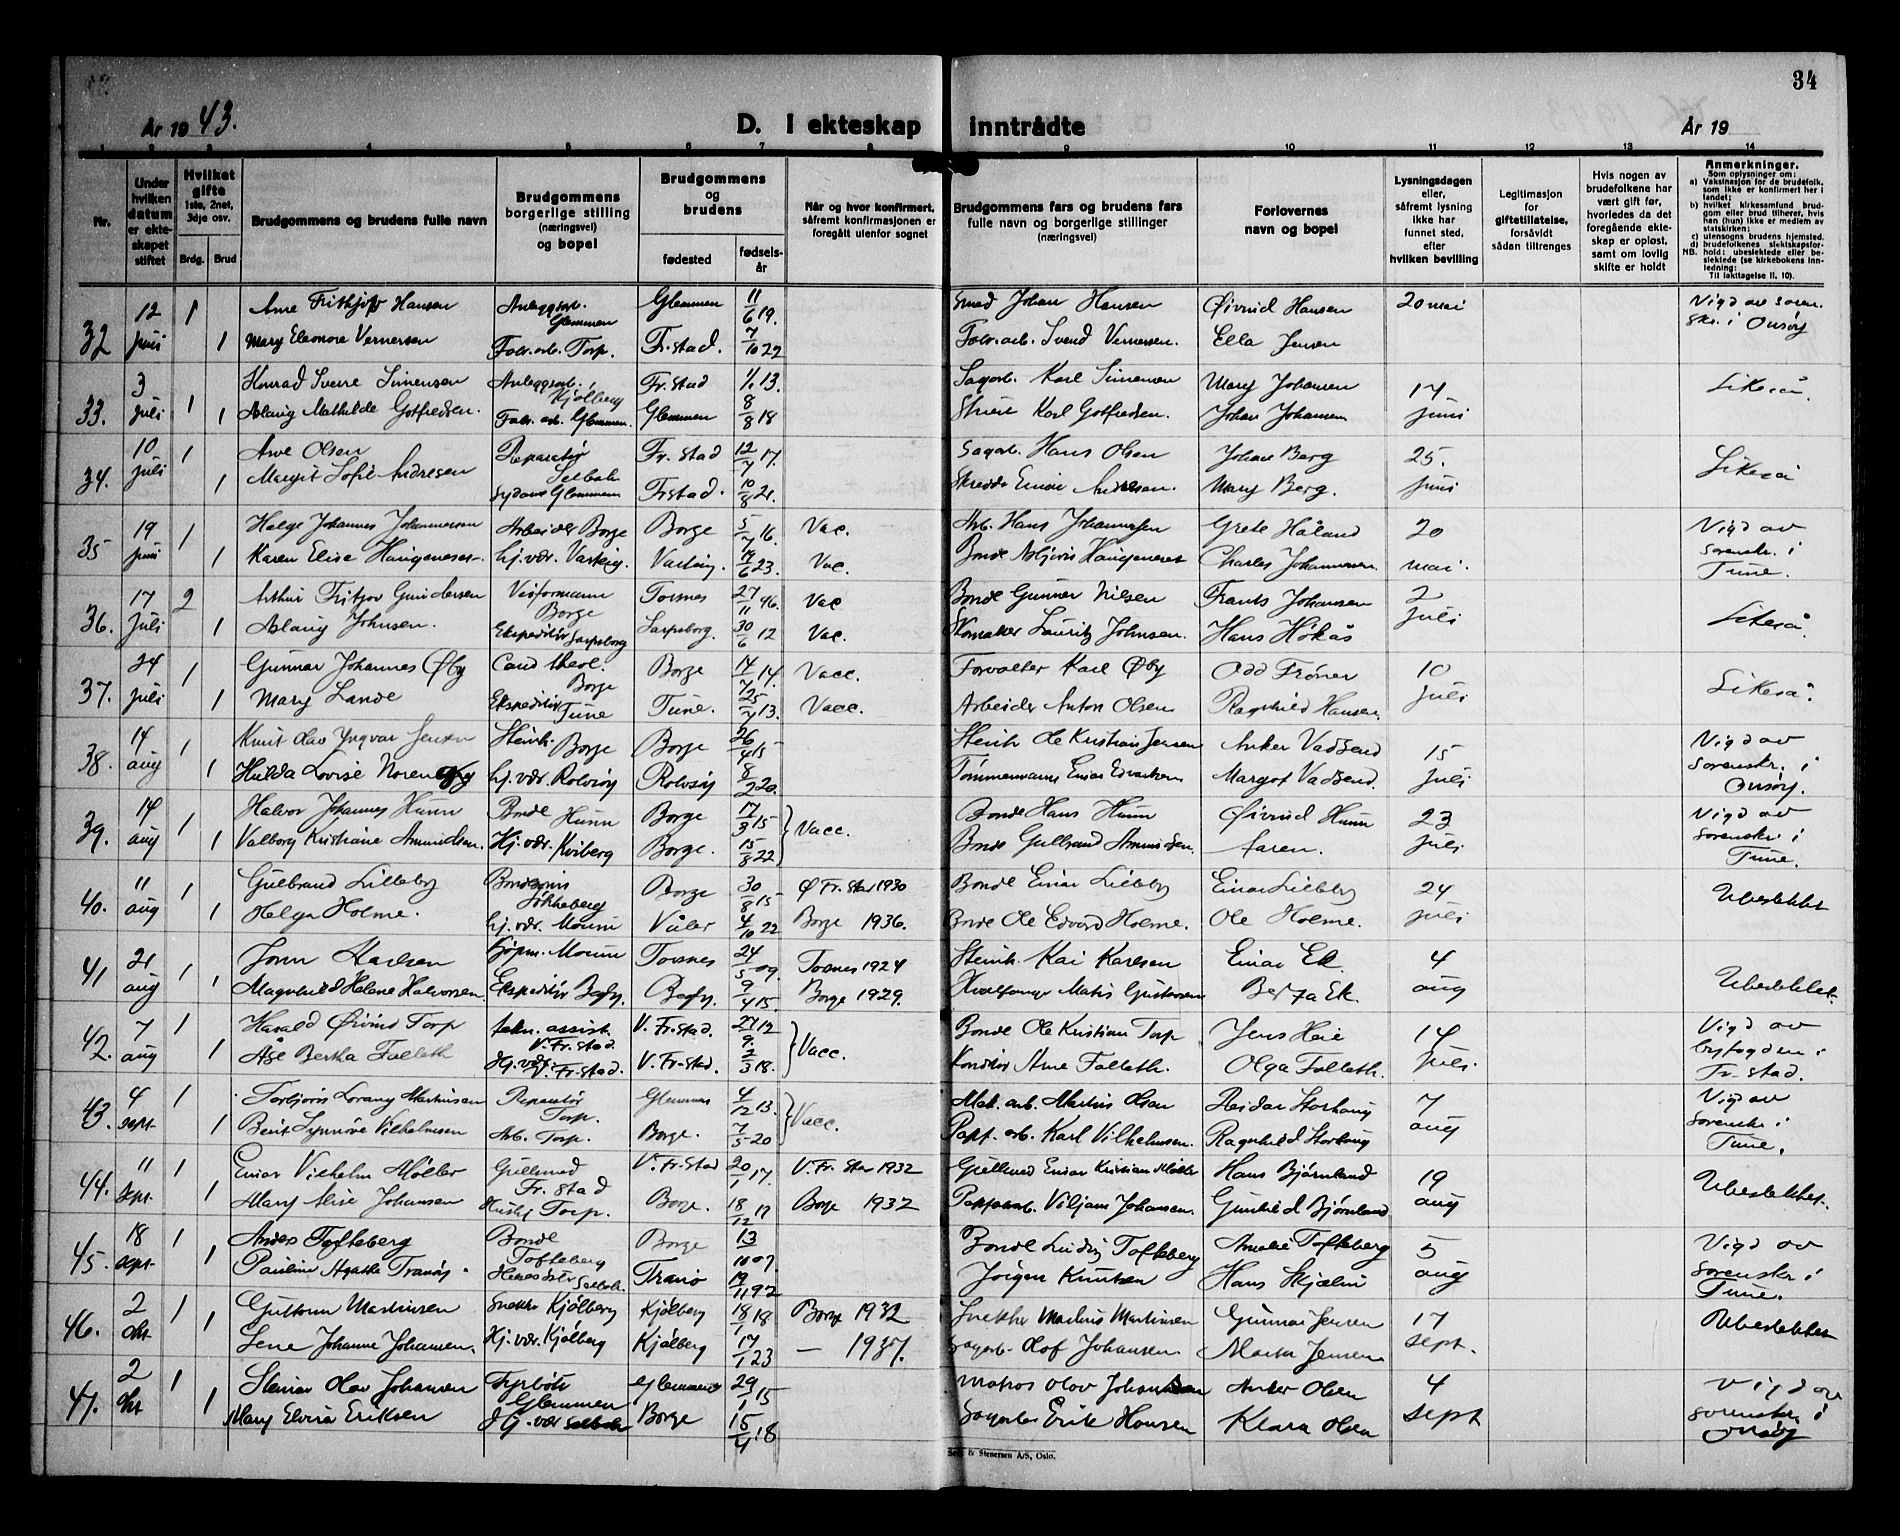 34
År 19 43.
D. I ekteskap inntrådte
År 19
1 2 3 4 5 6 7 8 9 10 11 12 13 14
Nr.
Under hvilken datum er ekteskapet stiftet
Hvilket gifte 1ste, 2net, 3dje osv.
Brdg. Brud
Brudgommens og brudens fulle navn
Brudgommens borgerlige stilling (næringsvei) og bopel
Brudgommens og brudens
fødested
fødselsår
Når og hvor konfirmert, såfremt konfirmasjonen er foregått utenfor sognet
Brudgommens fars og brudens fars fulle navn og borgerlige stillinger (næringsvei)
Forlovernes navn og bopel
Lysningsdagen eller, såfremt lysning ikke har funnet sted, efter hvilken bevilling
Legitimasjon for giftetillatelse, forsåvidt sådan tiltrenges
Hvis nogen av brudefolkene har vært gift før, hvorledes da det foregående ekteskap er opløst, samt om lovlig skifte er holdt
Anmerkninger.
Som oplysninger om:
a) Vaksinasjon for de brudefolk, som ikke er konfirmert her i landet;
b) hvilket kirkesamfund brudgom eller brud tilhører, hvis han (hun) ikke er medlem av statskirken;
c) utensogns brudens hjemsted.
d) brudefolkenes slektskapsforhold: ubeslektede eller beslektede (se kirkebokens innledning:
NB.
Til iakttagelse II, 10).
32 12 juni 1 Arne Frithjof Hansen Anleggsarb. Glemmen Glemmen 11/6 19. Smed Johan Hansen Øivind Hansen 20 mai Vigd av soren skr. i Onsøy
1 Mary Eleonore Vernersen Fabr.arb. Torp. Fr.stad. 7/10 22 Fabr.arb. Svend Vernersen. Ella Jensen
33. 3 juli 1 Konrad Sverre Simensen Anleggsarb. Kjølberg Fr.stad 1/1 13. Sagarb. Karl Simensen Mary Johansen 17 juni Likeså.
1 Aslaug Mathilde Gotfredsen. Fabr. arb. Glemmen. Glemmen 8/8 18 Karl Gotfredsen. Johan Johansen
34. 10 juli 1 Arve Olsen Reparatør Selbak Fr. stad 12/7 17. Sagarb. Hans Olsen Johan Berg 25. juni Likeså
1 Margit Sofie Andresen Sydame Glemmen Fr.stad. 10/8 21. Skredder Einar Andresen. Mary Berg.
35 19 juni 1 Helge Johannes Johannessen Arbeider Borge Borge 5/7 16. Vac. Arb. Hans Johannessen Grete Håland 20 mai. Vigd av sorenskr. i Tune.
1 Karen Elise Haugeneset Hj.vær. Varteig. Varteig. 14/6 23. Vac. Bonde Asbjørn Haugeneset Charles Johannessen.
36. 17 juli 2 Arthur Fritjov Gundersen Viseformann Borge Torsnes 27/11 96. Vac Bonde Gunnar Nilsen Frants Johansen 2 juli Likeså.
1 Aslaug Johnsen. Ekspeditør Sarpsborg Sarpsborg. 30/6 12 Vac. Skomaker Lauritz Johnsen. Hans Høkås
37. 24 juli 1 Gunnar Johannes Øby Cand theol. Borge Borge 14/7 14. Vacc. Forvalter Karl Øby Odd Frøner 10 juli Likeså.
1 Mary Lande Ekspeditør Tune Tune. 25/7 13. Vacc. Arbeider Anton Olsen Ragnhild Hansen.
38. 14 aug 1 Knut Olav Yngvar Jensen Steinh. Borge Borge 26/4 15 Steinh Ole Kristian Jensen Anker Vadsend 15 juli Vigd av sorenskr. i Onsøy.
1 Hulda Lovise Norenberg Hj.vær. Rolvsøy Rolvsøy 8/2 20. Tømmermann Einar Edvardsen Margot Vadsend.
39. 14 aug 1 Halvor Johannes Hunn Bonde Hunn Borge 17/3 15 Vacc. Bonde Hans Hunn Øivind Hunn 23 juli Vigd av sorenskr. i Tune.
1 Valborg Kristiane Amundsen. Hj.vær. Kviberg Borge. 15/8 22 Bonde Gulbrand Amundsen. faren.
40. 11 aug 1 Gulbrand Lilleby Bondesønn Løkkeberg Borge 30/8 15 Ø Fr.stad 1930 Bonde Einar Lilleby Einar Lilleby 24 juli Ubeslektet
1 Helga Holme. Hj.vær. Moum Våler 4/10 22 Borge 1936. Bonde Ole Edvard Holme. Ole Holme.
41 21 aug 1 John Karlsen Kjøpm. Moum Torsnes 24/5 09. Torsnes 1924 Steinh. Kai Karlsen Einar Ek. 4 aug Ubeslektet.
1 Magnhild Helene Halvorsen Ekspeditør Begby. Begby. 9/4 15. Borge 1929. Hvalfanger Matis Gustavsen Berta Ek.
42. 7 aug 1 Harald Øivind Torp tekn. assist. V. Fr. stad. V. Fr. stad. 27/9 12 Vacc. Bonde Ole Kristian Torp Jens Heie 14 juli. Vigd av byfogden i Fr. stad.
1 Åse Bertha Falleth Hj. vær. V. Fr. stad. V. Fr. stad. 2/3 18. Kontor Arne Falleth. Olga Falleth.
43. 4 sept 1 Torbjørn Lorang Martinsen Reparatør Torp. Glemmen 4/12 13. Vacc. Mek. arb. Martin Olsen Reidar Storhaug 7 aug Vigd av sorenskr i Tune.
1 Berit Synnøve Vilhelmsen Arb. Torp. Borge. 7/5 20 Papf. arb. Karl Vilhelmsen. Ragnhild Storhaug
44. 11 sept. 1 Einar Vilhelm Møller Gullsmed Fr. stad V. Fr. stad 20/1 17. V. Fr. stad 1932 Gullsmed Einar Kristian Møller Hans Bjørnland 19 aug Ubeslektet.
1 Mary Alise Johansen Hushj Torp. Borge. 18/12 17 Borge 1932 Pappsarb. Viljam Johansen. Gunhild Bjørnland
45. 18 sept. 1 Anders Tofteberg Bonde Tofteberg Borge 13/10 07. Bonde Ludvig Tofteberg Amalie Tofteberg 5 aug Vigd av sorenskr i Tune.
1 Pauline Agathe Tranøy. Selbak. Tranø 19/11 92 Jörgen Knutsen Hans Skjælin
46. 2 okt 1 Guttorm Martinsen Snekker Kjølberg Kjølberg 18/1 18 Borge 1932 Snekker Markus Martinsen Gunnar Jensen 17 sept. Ubeslektet
1 Lene Johanne Johansen. Hj. vær. Kjølberg Kjølberg 17/1 23 — 1937. Sagarb. Olof Johansen Marta Jensen
47. 2 okt 1 Steinar Olav Johansen Fyrbøter Glemmen Glemmen 29/1 15 Matros Olav Johansen Anker Olsen 4 sept Vigd av sorenskr. i Onsøy
1 Mary Elvira Eriksen Hj. vær Selbak Borge 15/4 18 Sagarb. Erik Hansen Klara Olsen
Sem & Stenersen A/S, Oslo.